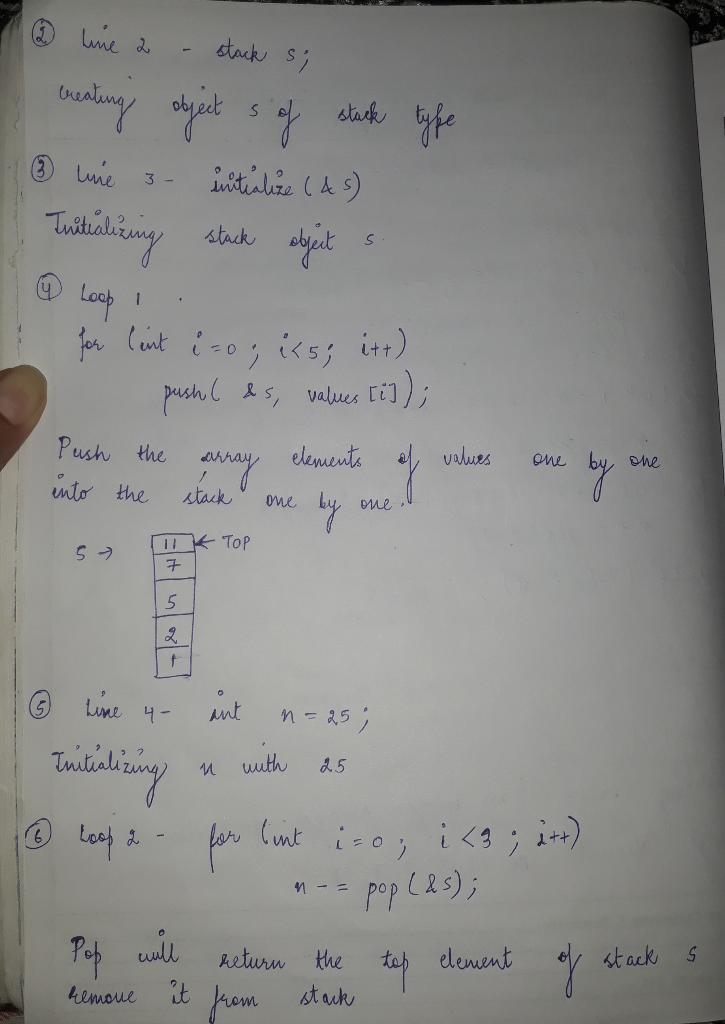 ② Line 2 - stack s;
creating object s of stack type
③ Line 3 - initialize (& s)
Initializing stack object s.
④ Loop 1
for (int i = 0 ; i<5; i++)
push( & s, values [i]);
Push the array elements of values one by one
into the stack one by one.
S → 11 ← TOP
7
5
2
1
⑤ Line 4 - int n = 25 ;
Initializing n with 25
⑥ Loop 2 - for (int i = 0 ; i <3 ; i++)
n - = pop (&S);
Pop will return the top element of stack s
remove it from stack